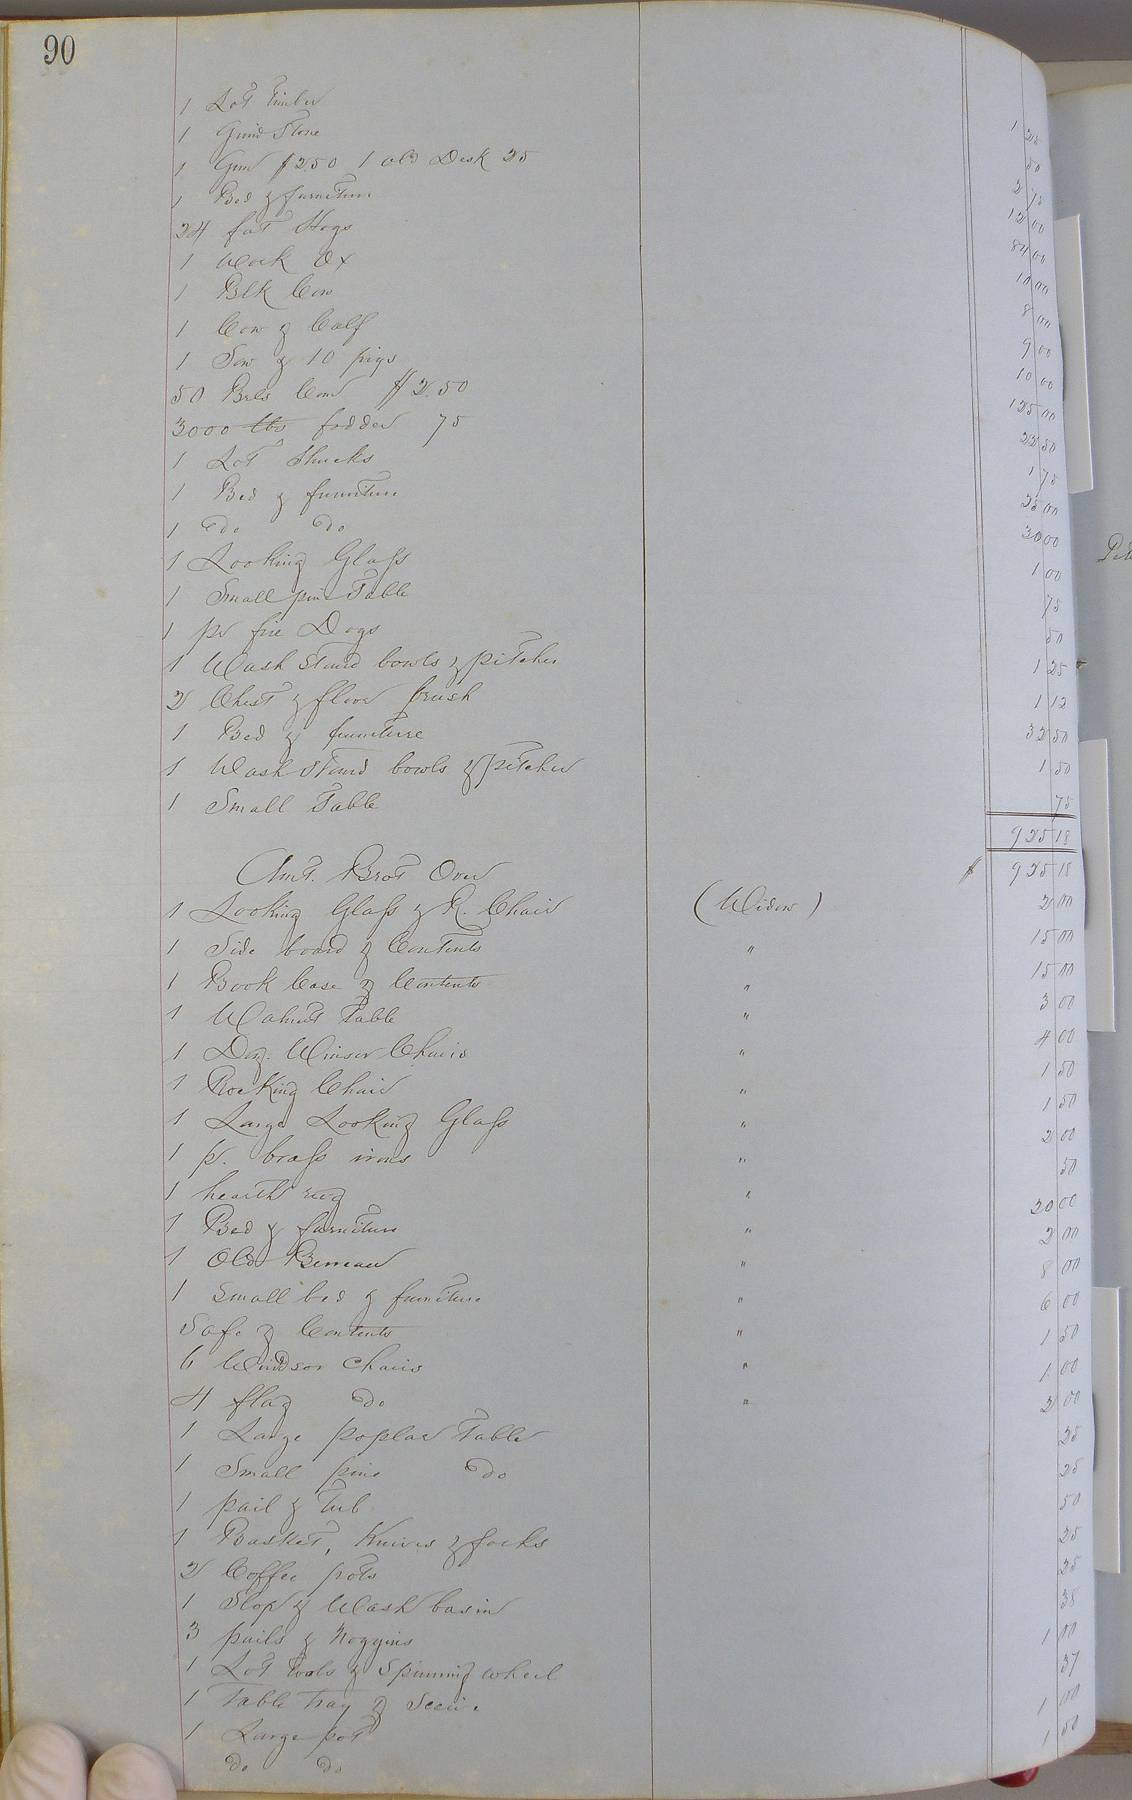 90
1 Lot Timber 1 25
1 Grind Stone 50
1 Gun $2.50 1 old Desk 25 2 75
1 Bed & furniture 12 00
24 fat Hogs 84 00
1 Work Ox 10 00
1 Blk Cow 8 00
1 Cow & Calf 9 00
1 Sow & 10 pigs 10 00
50 Brls Corn $2.50 125 00
3000 lbs fodder 75 22 50
1 Lot Shucks 1 75
1 Bed & furniture 25 00
1 Do Do 30 00
1 Looking Glass 1 00
1 Small pine Table 75
1 pr fire Dogs 50
1 Wash Stand bowls & pitcher 1 25
2 Chest & floor brush 1 12
1 Bed & furniture 32 50
1 Wash Stand bowls & pitcher 1 50
1 Small Table 75
925 18
Amt. Brot Over $ 925 18
1 Looking Glass & R. Chair (Widow) 2 00
1 Side board & Contents " 15 00
1 Book Case & Contents " 15 00
1 Walnut Table " 3 00
1 Doz. Winsor Chairs " 4 00
1 Rocking Chair " 1 50
1 Large Looking Glass " 1 50
1 pr. brass irons " 2 00
1 hearth rug " 50
1 Bed & furniture " 20 00
1 Old Bureau " 2 00
1 Small bed & furniture " 8 00
Safe & Contents " 6 00
6 Windsor Chairs " 1 50
4 flag Do " 1 00
1 Large poplar Table 2 00
1 Small pine Do 25
1 pail & Tub 25
1 Basket, Knives & forks 50
2 Coffee pots 25
1 Slop & Wash basin 25
3 pails & Noggins 38
1 Lot Tools & Spinning wheel 1 00
1 Table Tray & 37
1 Large pot 1 00
Do Do 1 50